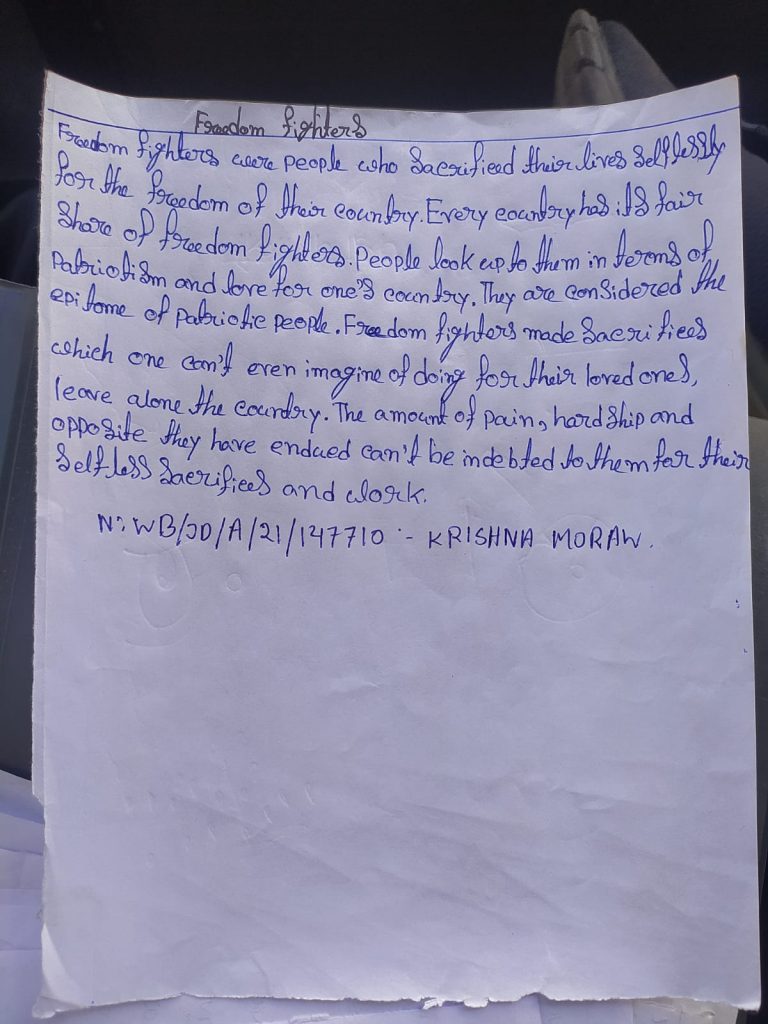 Freedom fighters
Freedom fighters were people who sacrificed their lives selflessly
for the freedom of their country. Every country has its fair
share of freedom fighters. People look up to them in terms of
patriotism and love for one's country. They are considered the
epitome of patriotic people. Freedom fighters made sacrifices
which one can't even imagine of doing for their loved ones,
leave alone the country. The amount of pain, hardship and
opposite they have endued can't be indebted to them for their
selfless sacrifices and work.
N: WB/JD/A/21/147710 :- KRISHNA MORAW.